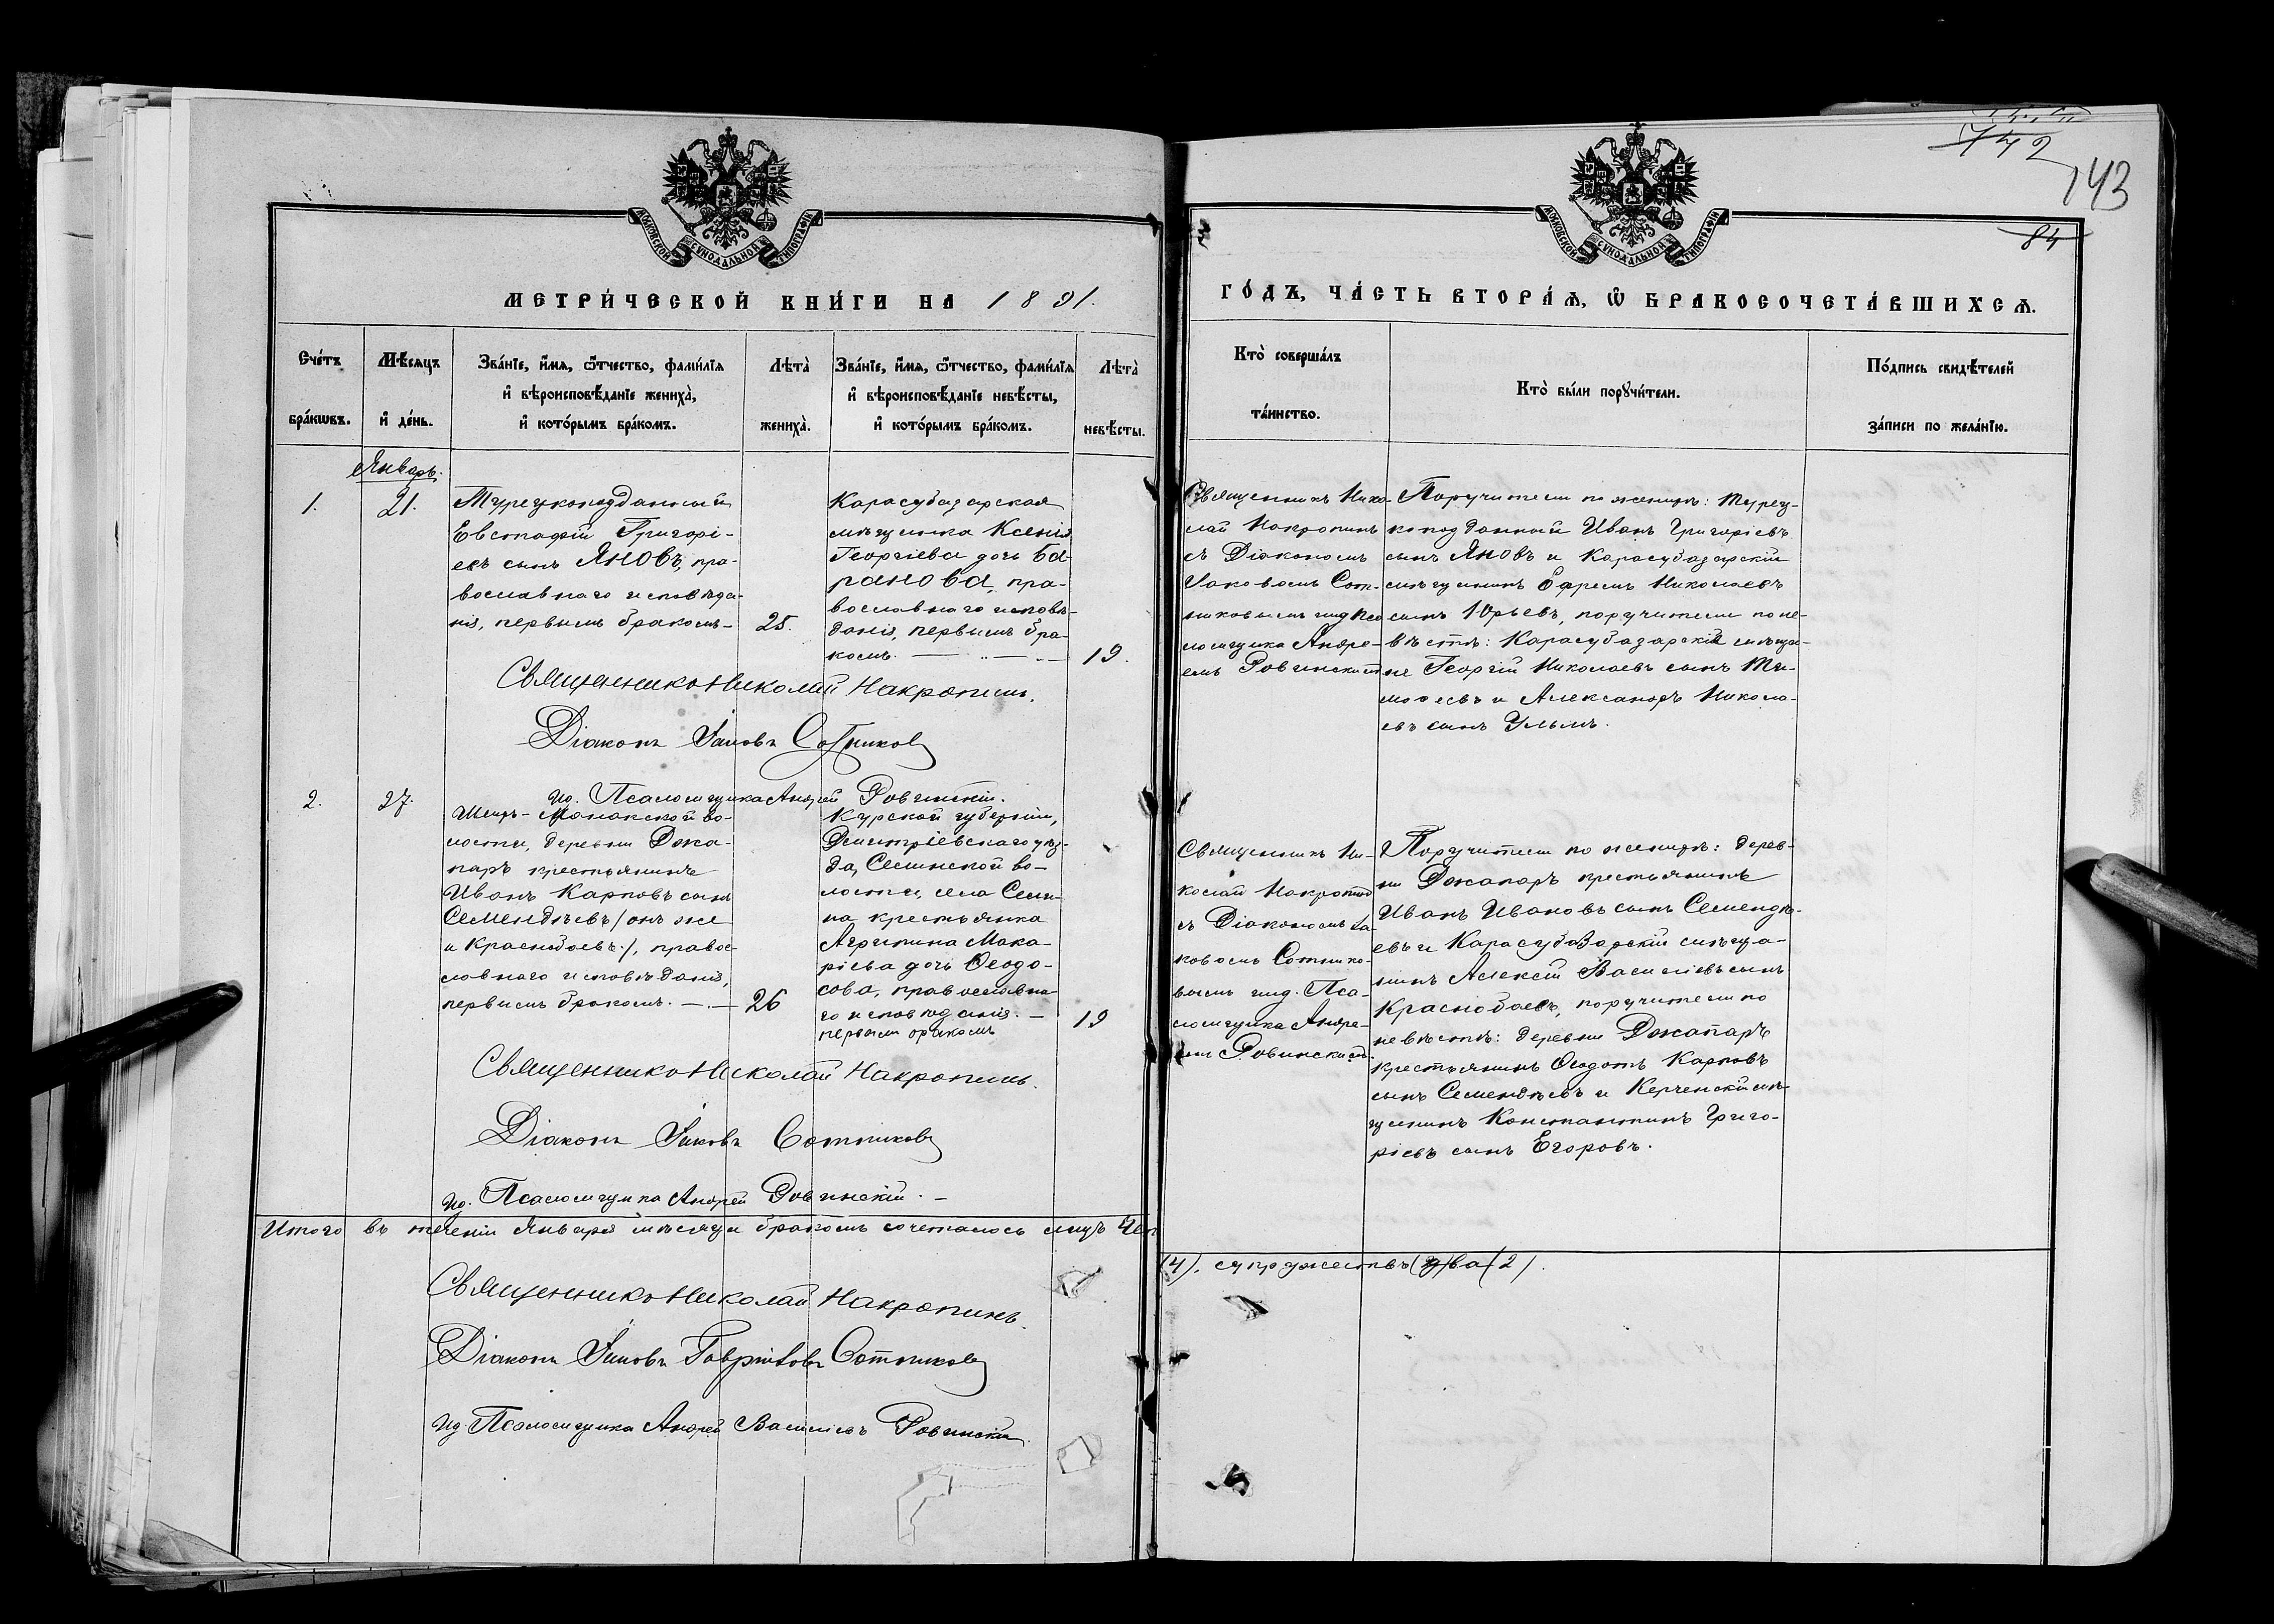 142
143
84
МОСКОВСКОЙ СѴНОДАЛЬНОЙ ТИПОГРАФІИ
МОСКОВСКОЙ СѴНОДАЛЬНОЙ ТИПОГРАФІИ
МЕТРИ́ЧЕСКОЙ КНИ́ГИ НА 1891.
ГО́ДЪ, ЧА́СТЬ ВТОРА́Ѧ, Ѡ҆ БРАКОСОЧЕТА́ВШИХСѦ.
Сче́тъ
бра́кѡвъ.
Мѣ́сяцъ
и҆ де́нь.
Зва́нїе, и҆́мѧ, ѻ҆́тчество, фами́лїѧ
и҆ вѣроисповѣ́данїе жениха̀,
и҆ кото́рымъ бра́комъ.
Лѣта̀
жениха̀.
Зва́нїе, и҆́мѧ, ѻ҆́тчество, фами́лїѧ
и҆ вѣроисповѣ́данїе невѣ́сты,
и҆ кото́рымъ бра́комъ.
Лѣта̀
невѣ́сты.
Кто̀ соверша́лъ
та́инство.
Кто̀ бы́ли порꙋчи́тели.
По́дпись свидѣ́телей
за́писи по жела́нїю.
Январь.
1.
21.
Турецкоподданный
Евстафій Григорі-
евъ сынъ Яновъ, пра-
вославнаго исповѣда-
нія, первымъ бракомъ-
25.
Карасубазарская
мѣщанка Ксенія
Георгіева дочь Ба-
ранова, пра-
вославнаго исповѣ-
данія, первымъ бра-
комъ.
19.
Священникъ Нико-
лай Накропинъ
съ Діакономъ
Іаковомъ Сот-
никовымъ и ид Пса
ломщика Андре-
емъ Ровинскимъ
Поручители по женихѣ: Турец-
коподданный Иванъ Григоріевъ
сынъ Яновъ и Карасубазарскій
мѣщанинъ Ефремъ Николаевъ
сынъ Юрьевъ, поручители по не-
вѣстѣ: Карасубазарскій мѣща-
не Георгій Николаевъ сынъ Ти-
моѳеевъ и Александръ Никола-
евъ сынъ
Священникъ Николай Накропинъ.
Діаконъ Іаковъ Сотников
ид. Псаломщика Андрей Ровинскій.
2.
27.
Шейхъ-Монакской во-
лости, деревни Джа-
паръ крестьянинъ
Иванъ Карповъ сынъ
Семендѣевъ /онъ же
и Краснобаевъ/, правос-
лавнаго исповѣданія,
первымъ бракомъ.
26
Курской губерніи,
Дмитріевскаго уѣз-
да, Селинской во-
лости, села Сели-
на крестьянка
Агрипина Мака-
рієва дочь Ѳеодо-
сова, православна-
го исповѣданія.
первымъ бракомъ
19
Священникъ Ни-
колай Накропинъ
съ Діакономъ Іа-
ковомъ Сотнико-
вымъ и ид. Пса-
ломщика Андре-
емъ Ровинскимъ.
Поручители по женихѣ: дерев-
ни Джапаръ крестьянинъ
Иванъ Ивановъ сынъ Семендѣ-
евъ и Карасубазарскій мѣща-
нинъ Алексій Василіевъ сынъ
Краснобаевъ, поручители по
невѣстѣ: деревни Джапаръ
крестьянинъ Ѳеодотъ Карповъ
сынъ Семендѣевъ и Керченскій мѣ-
щанинъ Константинъ Григо-
ріевъ сынъ Егоровъ.
Священникъ Николай Накропинъ.
Діаконъ Іаковъ Сотников
ид. Псаломщика Андрей Ровинскій.
Итого въ теченіи Января мѣсяца бракомъ сочеталось лицъ чет
(4), супружествъ два (2).
Священникъ Николай Накропинъ.
Діаконъ Іаковъ Гавріиловъ Сотников
ид Псаломщика Андрей Василіевъ Ровинскій